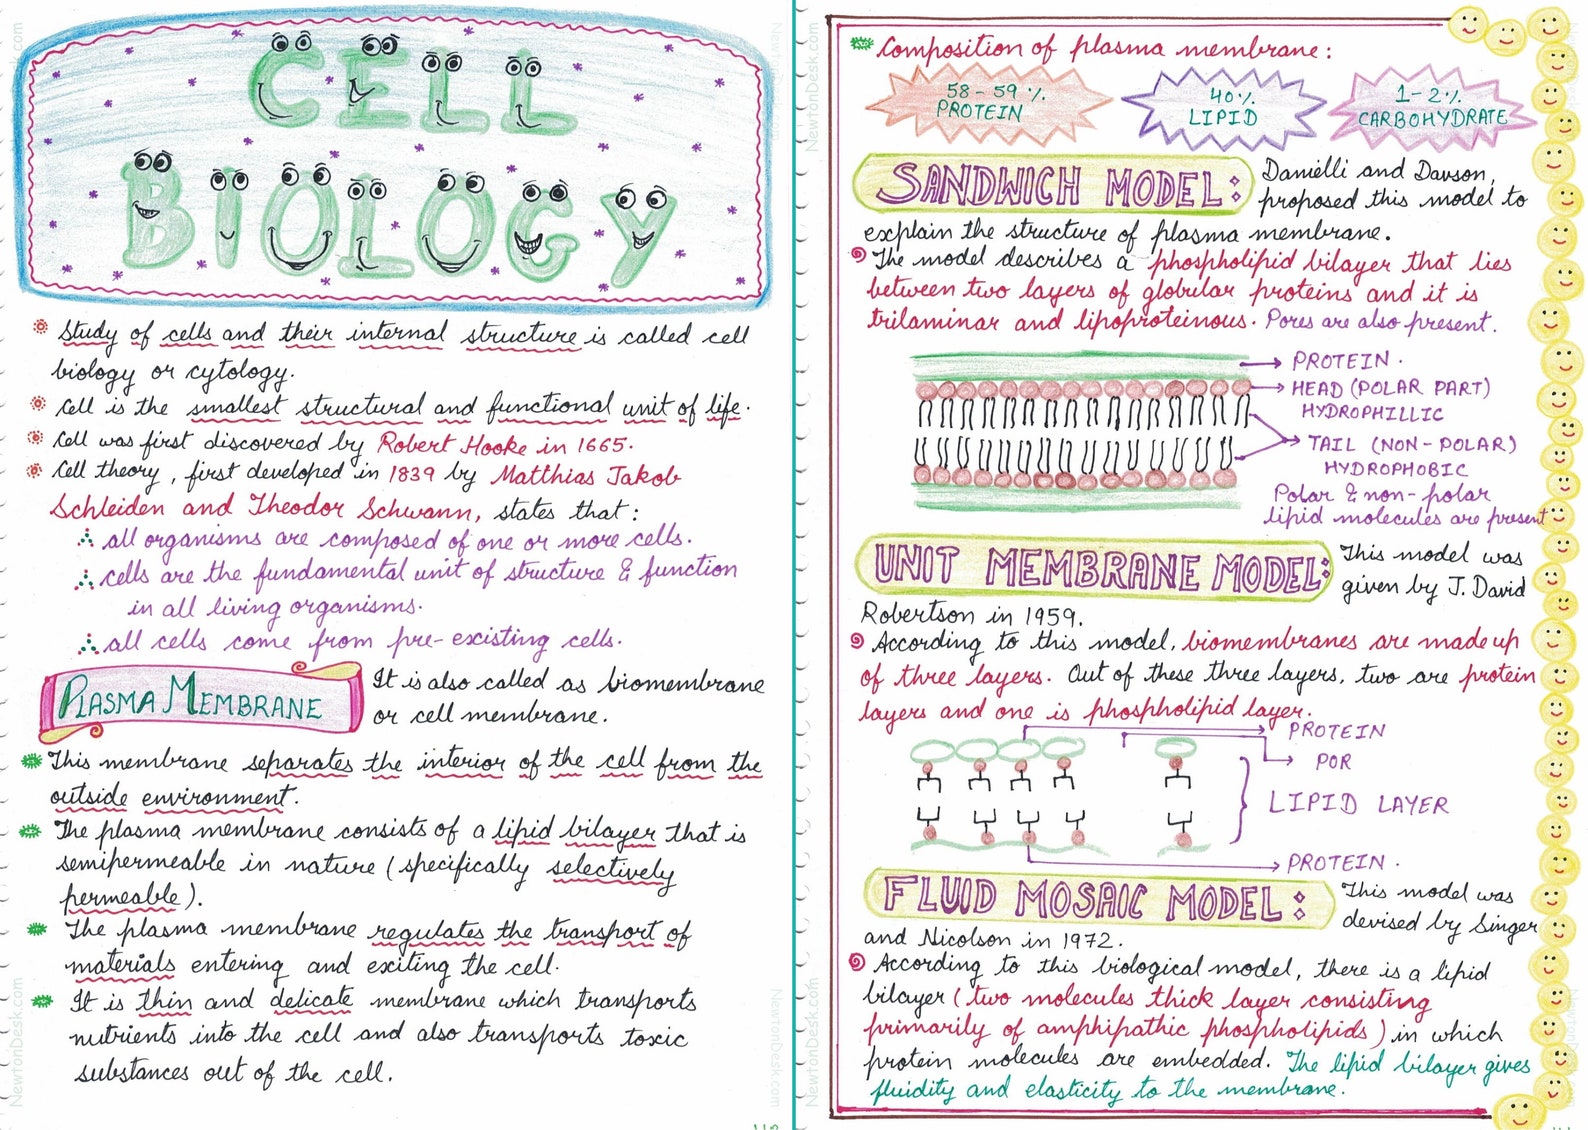 CELL
BIOLOGY
Study of cells and their internal structure is called cell
biology or cytology.
Cell is the smallest structural and functional unit of life.
Cell was first discovered by Robert Hooke in 1665.
Cell theory, first developed in 1839 by Matthias Jakob
Schleiden and Theodor Schwann, states that:
all organisms are composed of one or more cells.
cells are the fundamental unit of structure & function
in all living organisms.
all cells come from pre-existing cells.
PLASMA MEMBRANE
It is also called as biomembrane
or cell membrane.
This membrane separates the interior of the cell from the
outside environment.
The plasma membrane consists of a lipid bilayer that is
semipermeable in nature (specifically selectively
permeable).
The plasma membrane regulates the transport of
materials entering and exiting the cell.
It is thin and delicate membrane which transports
nutrients into the cell and also transports toxic
substances out of the cell.
NewtonDesk.com
NewtonDesk.com
Composition of plasma membrane:
58-59% PROTEIN
40% LIPID
1-2% CARBOHYDRATE
SANDWICH MODEL: Danielli and Davson,
proposed this model to
explain the structure of plasma membrane.
The model describes a phospholipid bilayer that lies
between two layers of globular proteins and it is
trilaminar and lipoproteinous. Pores are also present.
PROTEIN.
HEAD (POLAR PART)
HYDROPHILLIC
TAIL (NON-POLAR)
HYDROPHOBIC
Polar & non-polar
lipid molecules are present
UNIT MEMBRANE MODEL: This model was
given by J. David
Robertson in 1959.
According to this model, biomembranes are made up
of three layers. Out of these three layers, two are protein
layers and one is phospholipid layer.
PROTEIN
POR
LIPID LAYER
PROTEIN.
FLUID MOSAIC MODEL: This model was
devised by Singer
and Nicolson in 1972.
According to this biological model, there is a lipid
bilayer (two molecules thick layer consisting
primarily of amphipathic phospholipids) in which
protein molecules are embedded. The lipid bilayer gives
fluidity and elasticity to the membrane.
NewtonDesk.com